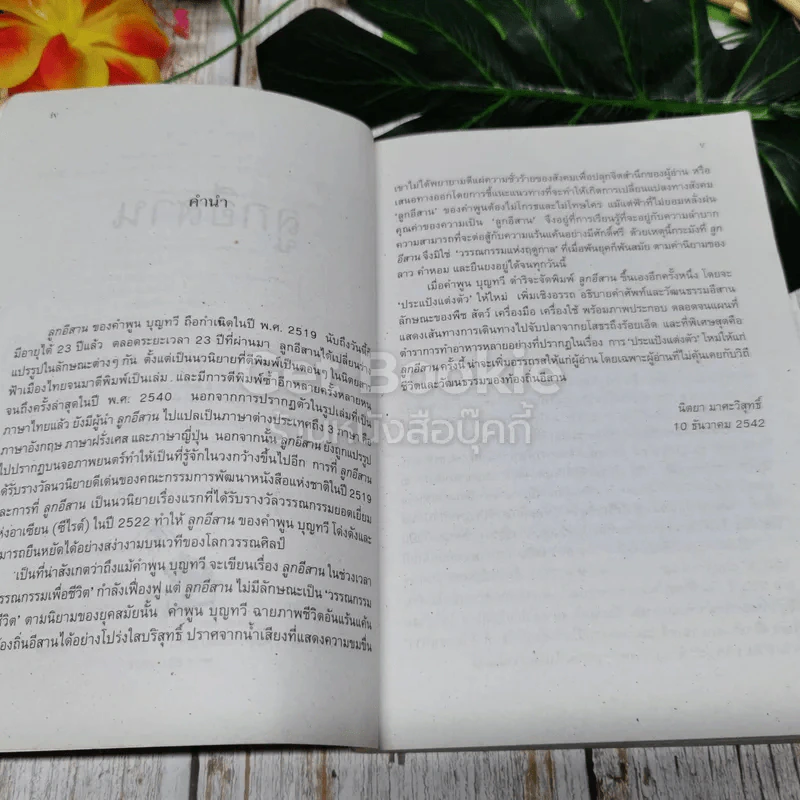 คำนำ
ลูกอีสาน ของคำพูน บุญทวี ถือกำเนิดในปี พ.ศ. 2519 นับถึงวันนี้ก็
มีอายุได้ 23 ปีแล้ว ตลอดระยะเวลา 23 ปีที่ผ่านมา ลูกอีสานได้เปลี่ยนร่าง
แปรรูปในลักษณะต่างๆ กัน ตั้งแต่เป็นนวนิยายที่ตีพิมพ์เป็นตอนๆ ในนิตยสาร
ฟ้าเมืองไทยจนมาตีพิมพ์เป็นเล่ม และมีการตีพิมพ์ซ้ำอีกหลายครั้งหลายหน
จนถึงครั้งล่าสุดในปี พ.ศ. 2540 นอกจากการปรากฏตัวในรูปเล่มที่เป็น
ภาษาไทยแล้ว ยังมีผู้นำ ลูกอีสาน ไปแปลเป็นภาษาต่างประเทศถึง 3 ภาษา คือ
ภาษาอังกฤษ ภาษาฝรั่งเศส และภาษาญี่ปุ่น นอกจากนั้น ลูกอีสาน ยังถูกแปรรูป
ไปปรากฏบนจอภาพยนตร์ทำให้เป็นที่รู้จักในวงกว้างขึ้นไปอีก การที่ ลูกอีสาน
ได้รับรางวัลนวนิยายดีเด่นของคณะกรรมการพัฒนาหนังสือแห่งชาติในปี 2519
และการที่ ลูกอีสาน เป็นนวนิยายเรื่องแรกที่ได้รับรางวัลวรรณกรรมยอดเยี่ยม
แห่งอาเซียน (ซีไรต์) ในปี 2522 ทำให้ ลูกอีสาน ของคำพูน บุญทวี โด่งดังและ
มารถยืนหยัดได้อย่างสง่างามบนเวทีของโลกวรรณศิลป์
เป็นที่น่าสังเกตว่าถึงแม้คำพูน บุญทวี จะเขียนเรื่อง ลูกอีสาน ในช่วงเวลา
วรรณกรรมเพื่อชีวิต' กำลังเฟื่องฟู แต่ ลูกอีสาน ไม่มีลักษณะเป็น 'วรรณกรรม
ชีวิต' ตามนิยามของยุคสมัยนั้น คำพูน บุญทวี ฉายภาพชีวิตอันแร้นแค้น
องถิ่นอีสานได้อย่างโปร่งใสบริสุทธิ์ ปราศจากน้ำเสียงที่แสดงความขมขื่น
เขาไม่ได้พยายามตีแผ่ความชั่วร้ายของสังคมเพื่อปลุกจิตสำนึกของผู้อ่าน หรือ
เสนอทางออกโดยการชี้แนะแนวทางที่จะทำให้เกิดการเปลี่ยนแปลงทางสังคม
'ลูกอีสาน' ของคำพูนต้องไม่โกรธและไม่โทษใคร แม้แต่ฟ้าที่ไม่ยอมหลั่งฝน
คุณค่าของความเป็น 'ลูกอีสาน' จึงอยู่ที่การเรียนรู้ที่จะอยู่กับความลำบาก
ความสามารถที่จะต่อสู้กับความแร้นแค้นอย่างมีศักดิ์ศรี ด้วยเหตุนี้กระมังที่ ลูก
อีสาน จึงมิใช่ 'วรรณกรรมแห่งฤดูกาล' ที่เมื่อพ้นยุคก็พ้นสมัย ตามคำนิยามของ
ลาว คำหอม และยืนยงอยู่ได้จนทุกวันนี้
เมื่อคำพูน บุญทวี ดำริจะจัดพิมพ์ ลูกอีสาน ขึ้นเองอีกครั้งหนึ่ง โดยจะ
'ประแป้งแต่งตัว' ให้ใหม่ เพิ่มเชิงอรรถ อธิบายคำศัพท์และวัฒนธรรมอีสาน
ลักษณะของพืช สัตว์ เครื่องมือ เครื่องใช้ พร้อมภาพประกอบ ตลอดจนแผนที่
แสดงเส้นทางการเดินทางไปจับปลาจากยโสธรถึงร้อยเอ็ด และที่พิเศษสุดคือ
ตำราการทำอาหารหลายอย่างที่ปรากฏในเรื่อง การ 'ประแป้งแต่งตัว' ใหม่ให้แก่
ลูกอีสาน ครั้งนี้ น่าจะเพิ่มอรรถรสให้แก่ผู้อ่าน โดยเฉพาะผู้อ่านที่ไม่คุ้นเคยกับวิถี
ชีวิตและวัฒนธรรมของท้องถิ่นอีสาน
นิตยา มาศะวิสุทธิ์
10 ธันวาคม 2542
Get Bookie
ร้านหนังสือบุ๊คกี้